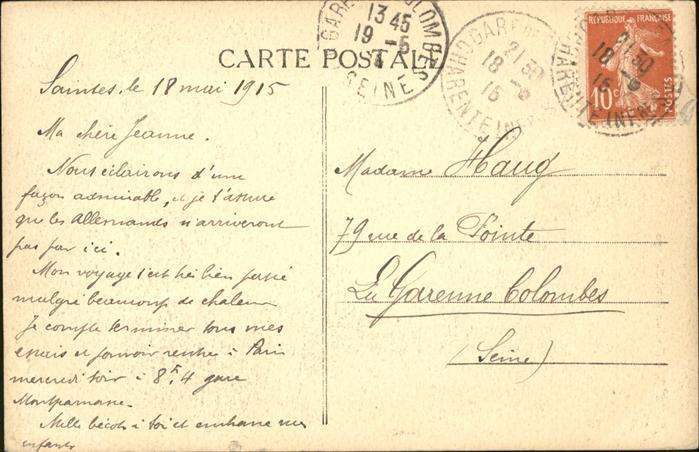 CARTE POSTALE
GARENNE COLOMBES
13 45
19 - 6
SEINE
GARE
21 30
18 - 6
15
CHARENTE INF
21 30
18 - 6
15
REPUBLIQUE FRANÇAISE
10 c
POSTES
Saintes, le 18 mai 1915
Ma chère Jeanne.
Nous éclairons d'une
façon admirable, et je t'assure
que les Allemands n'arriveront
pas par ici.
Mon voyage s'est très bien passé
malgré beaucoup de chaleur
Je compte terminer tous mes
essais et pouvoir rentrer à Paris
mercredi soir à 8h,4 gare
Montparnasse.
Mille bécots à toi et embrasse mes
enfants
Madame Haug
79 rue de la Pointe
La Garenne Colombes
(Seine)